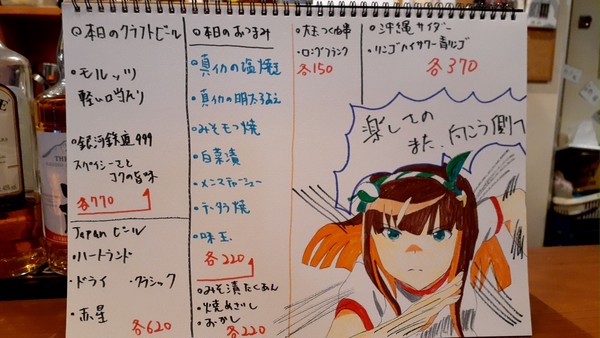 ◎本日のクラフトビール
・モルッツ
軽い口当たり
・銀河鉄道999
スパイシーでと
コクの旨味
各770
Japanビール
・ハートランド
・ドライ ・クラシック
・赤星
各620
◎本日のおつまみ
・真イカの塩焼き
・真イカの明太和え
・みそモツ焼
・白菜漬
・メンマチャーシュー
・チータラ焼
・味玉
各220
・みそ漬たくあん
・焼めざし
・おかし
各220
・大玉つくね串
・ロングフランク
各150
・沖縄サイダー
・リンゴハイサワー青リンゴ
各370
楽しての
また、向こう側へ